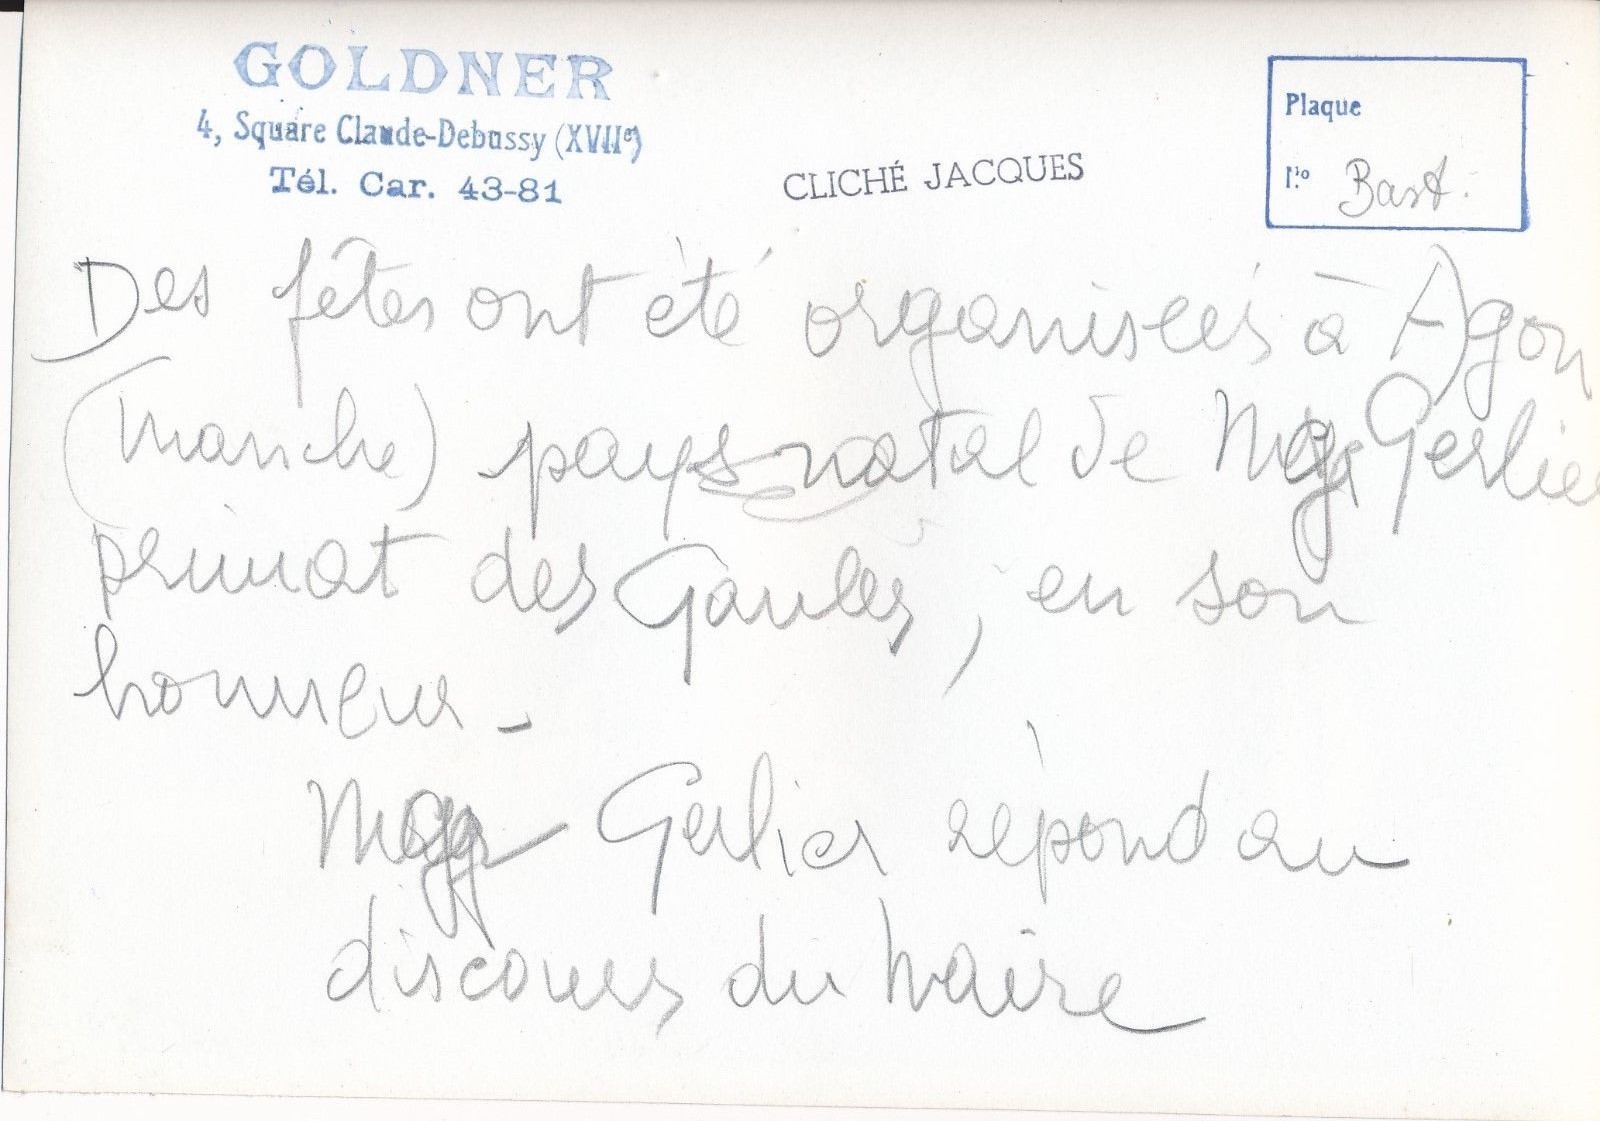 GOLDNER
4, Square Claude-Debussy (XVIIe)
Tél. Car. 43-81
CLICHÉ JACQUES
Plaque
No Bast.
Des fêtes ont été organisées à Agon
(Manche) pays natal de Mgr Gerlier
primat des Gaules, en son
honneur -
Mgr Gerlier répond au
discours du Maire